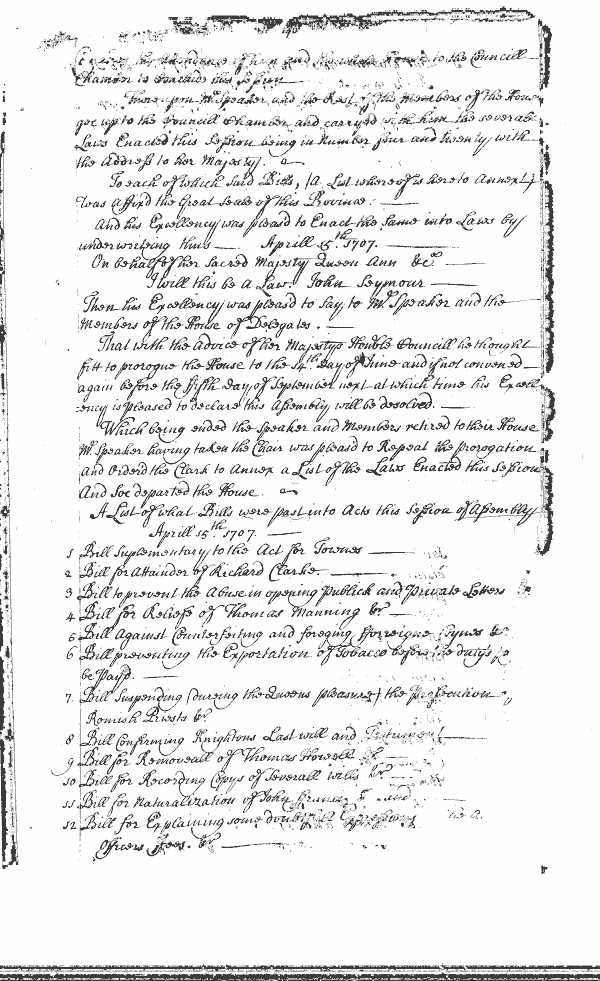 the Attendance of him and the whole House to the Councill
Chamber to conclude this Session
Thereupon Mr. Speaker and the Rest of the Members of the House
goe up to the Councill Chamber and carryed with him the severall
Laws Enacted this Session being in Number four and twenty with
the Address to her Majesty.
To each of which said Bills, (A List whereof is hereto Annext)
was Affixd the Great Seale of this Province:
And his Excellency was pleasd to Enact the Same into Laws by
underwriting thus Aprill 15.th 1707.
On behalf of her Sacred Majesty Queen Ann &ca
I will this be a Law. John Seymour
Then his Excellency was pleasd to Say, to Mr. Speaker and the
Members of the House of Delegates.
That with the advice of her Majestys Honble Councill he thought
fitt to prorogue the House to the 14th day of June and if not convened
again before the fifth day of September next at which time his Excell
ency is pleased to declare this Assembly will be desolved.
Which being ended the Speaker and Members retired to their House
Mr. Speaker having taken the Chair was pleasd to Repeat the prorogation
and Orderd the Clark to Annex a List of the Laws Enacted this Session
And Soe departed the House.
A List of what Bills were past into Acts this Session of Assembly
Aprill 15th. 1707.
1 Bill Suplementary to the Act for Townes
2 Bill for Attainder of Richard Clarke.
3 Bill to prevent the Abuse in opening Publick and Private Letters
4 Bill for Reliefe of Thomas Manning &c.
5 Bill Against Counterfeiting and foreging fforreigne Coynes &c
6 Bill preventing the Exportation of Tobacco before the dutys
be Payd.
7. Bill Suspending (during the Queens pleasure) the Prosecution
Romish Priests &c.
8 Bill Confirming Knightons Last will and
9 Bill for Removeall of Thomas Howell
10 Bill for Recording Copys of Severall wills &c.
11 Bill for Naturalization of John
12 Bill for Explaining some doubtfull Expressions
Officers ffees. &c